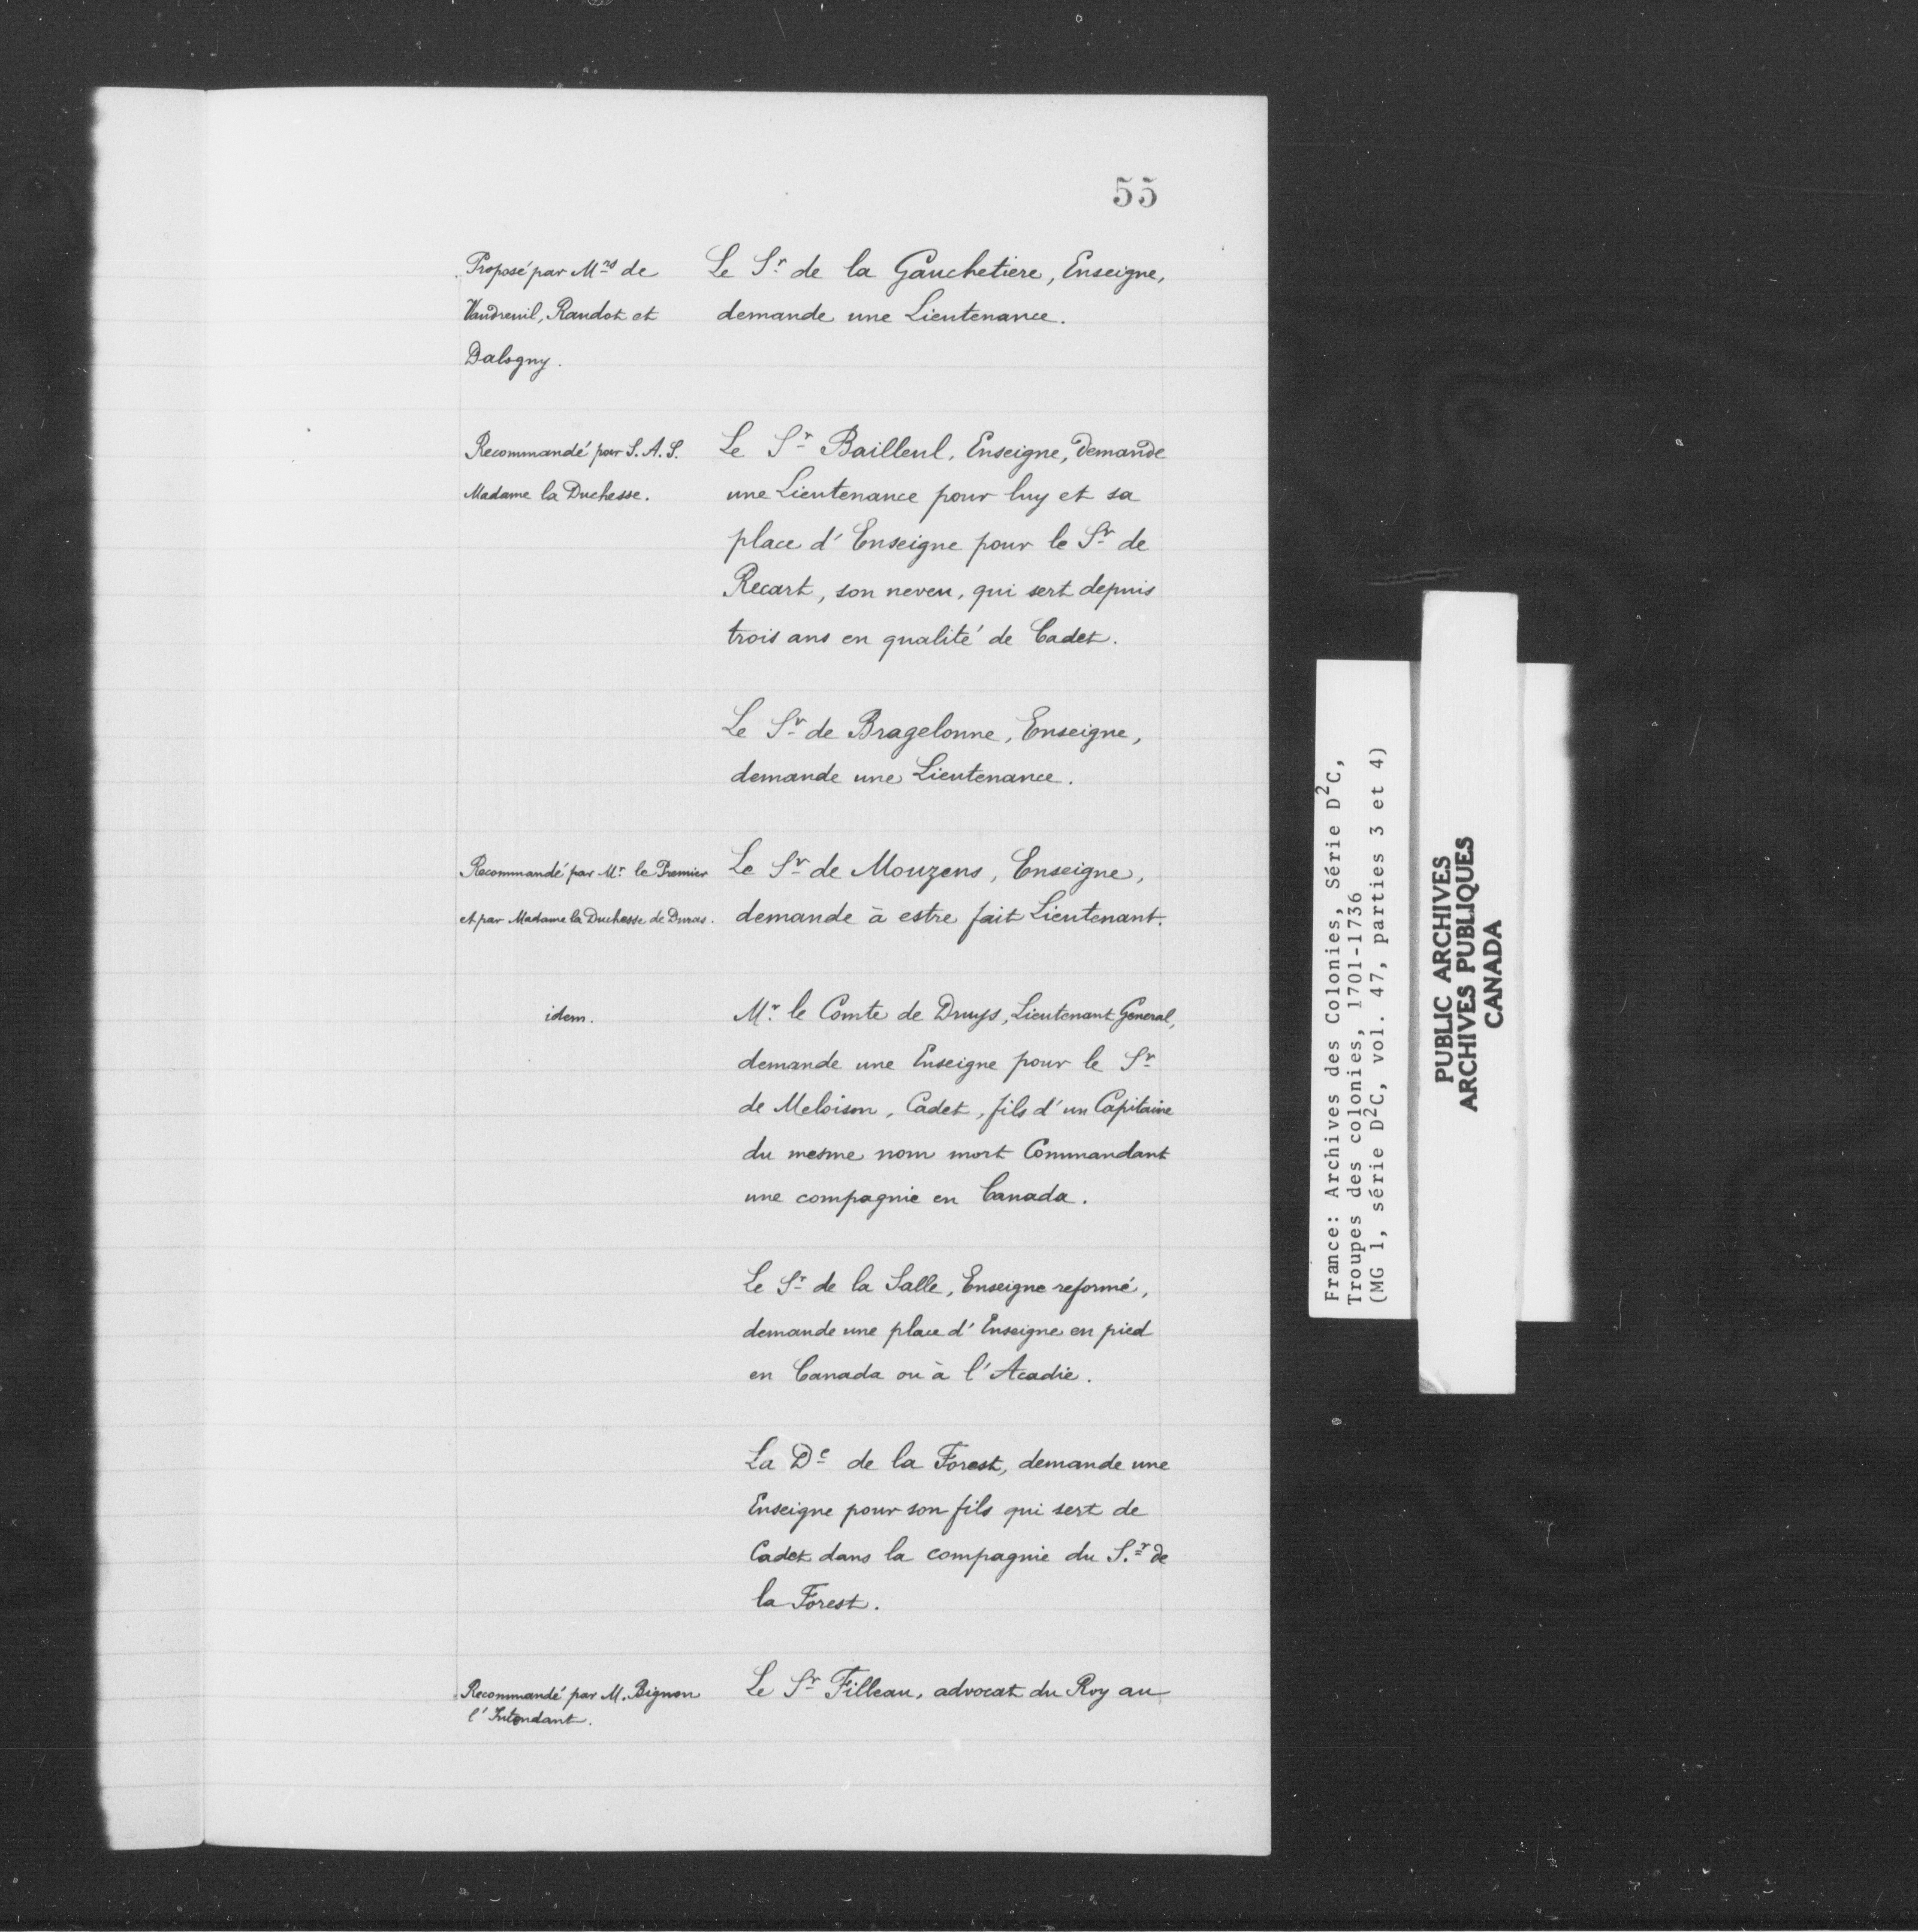 55
Proposé par Mrs de
Vaudreuil, Raudot et
Dalogny.
Le Sr de la Gauchetiere, Enseigne,
demande une Lieutenance.
Recommandé par S. A. S.
Madame la Duchesse.
Le Sr Bailleul, Enseigne, demande
une Lieutenance pour luy et sa
place d'Enseigne pour le Sr de
Recart, son neveu, qui sert depuis
trois ans en qualité de Cadet.
Le Sr de Bragelonne, Enseigne,
demande une Lieutenance.
Recommandé par Mr le Premier
et par Madame la Duchesse de Duras.
Le Sr de Mouzens, Enseigne,
demande à estre fait Lieutenant.
idem.
Mr le Comte de Druys, Lieutenant General,
demande une Enseigne pour le Sr
de Meloison, Cadet, fils d'un Capitaine
du mesme nom mort Commandant
une compagnie en Canada.
Le Sr de la Salle, Enseigne reformé,
demande une place d'Enseigne en pied
en Canada ou à l'Acadie.
La De de la Forest, demande une
Enseigne pour son fils qui sert de
Cadet dans la compagnie du S.r de
la Forest.
Recommandé par M. Bignon
l'Intendant.
Le Sr Filleau, advocat du Roy au
France: Archives des Colonies, Série D2C,
Troupes des colonies, 1701-1736
(MG 1, série D2C, vol. 47, parties 3 et 4)
PUBLIC ARCHIVES
ARCHIVES PUBLIQUES
CANADA